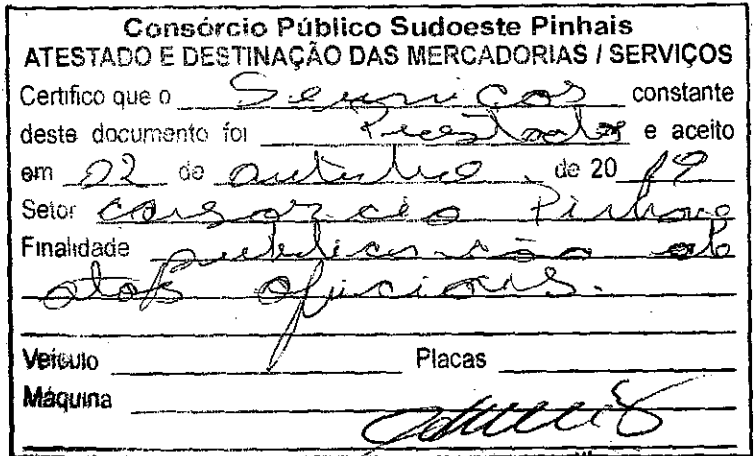 Consórcio Público Sudoeste Pinhais
ATESTADO E DESTINAÇÃO DAS MERCADORIAS / SERVIÇOS
Certifico que o Serviços constante
deste documento foi Prestado e aceito
em 22 de outubro de 20 19
Setor consorcio Pinhais
Finalidade publicação de
atos oficiais.
Veículo Placas
Máquina